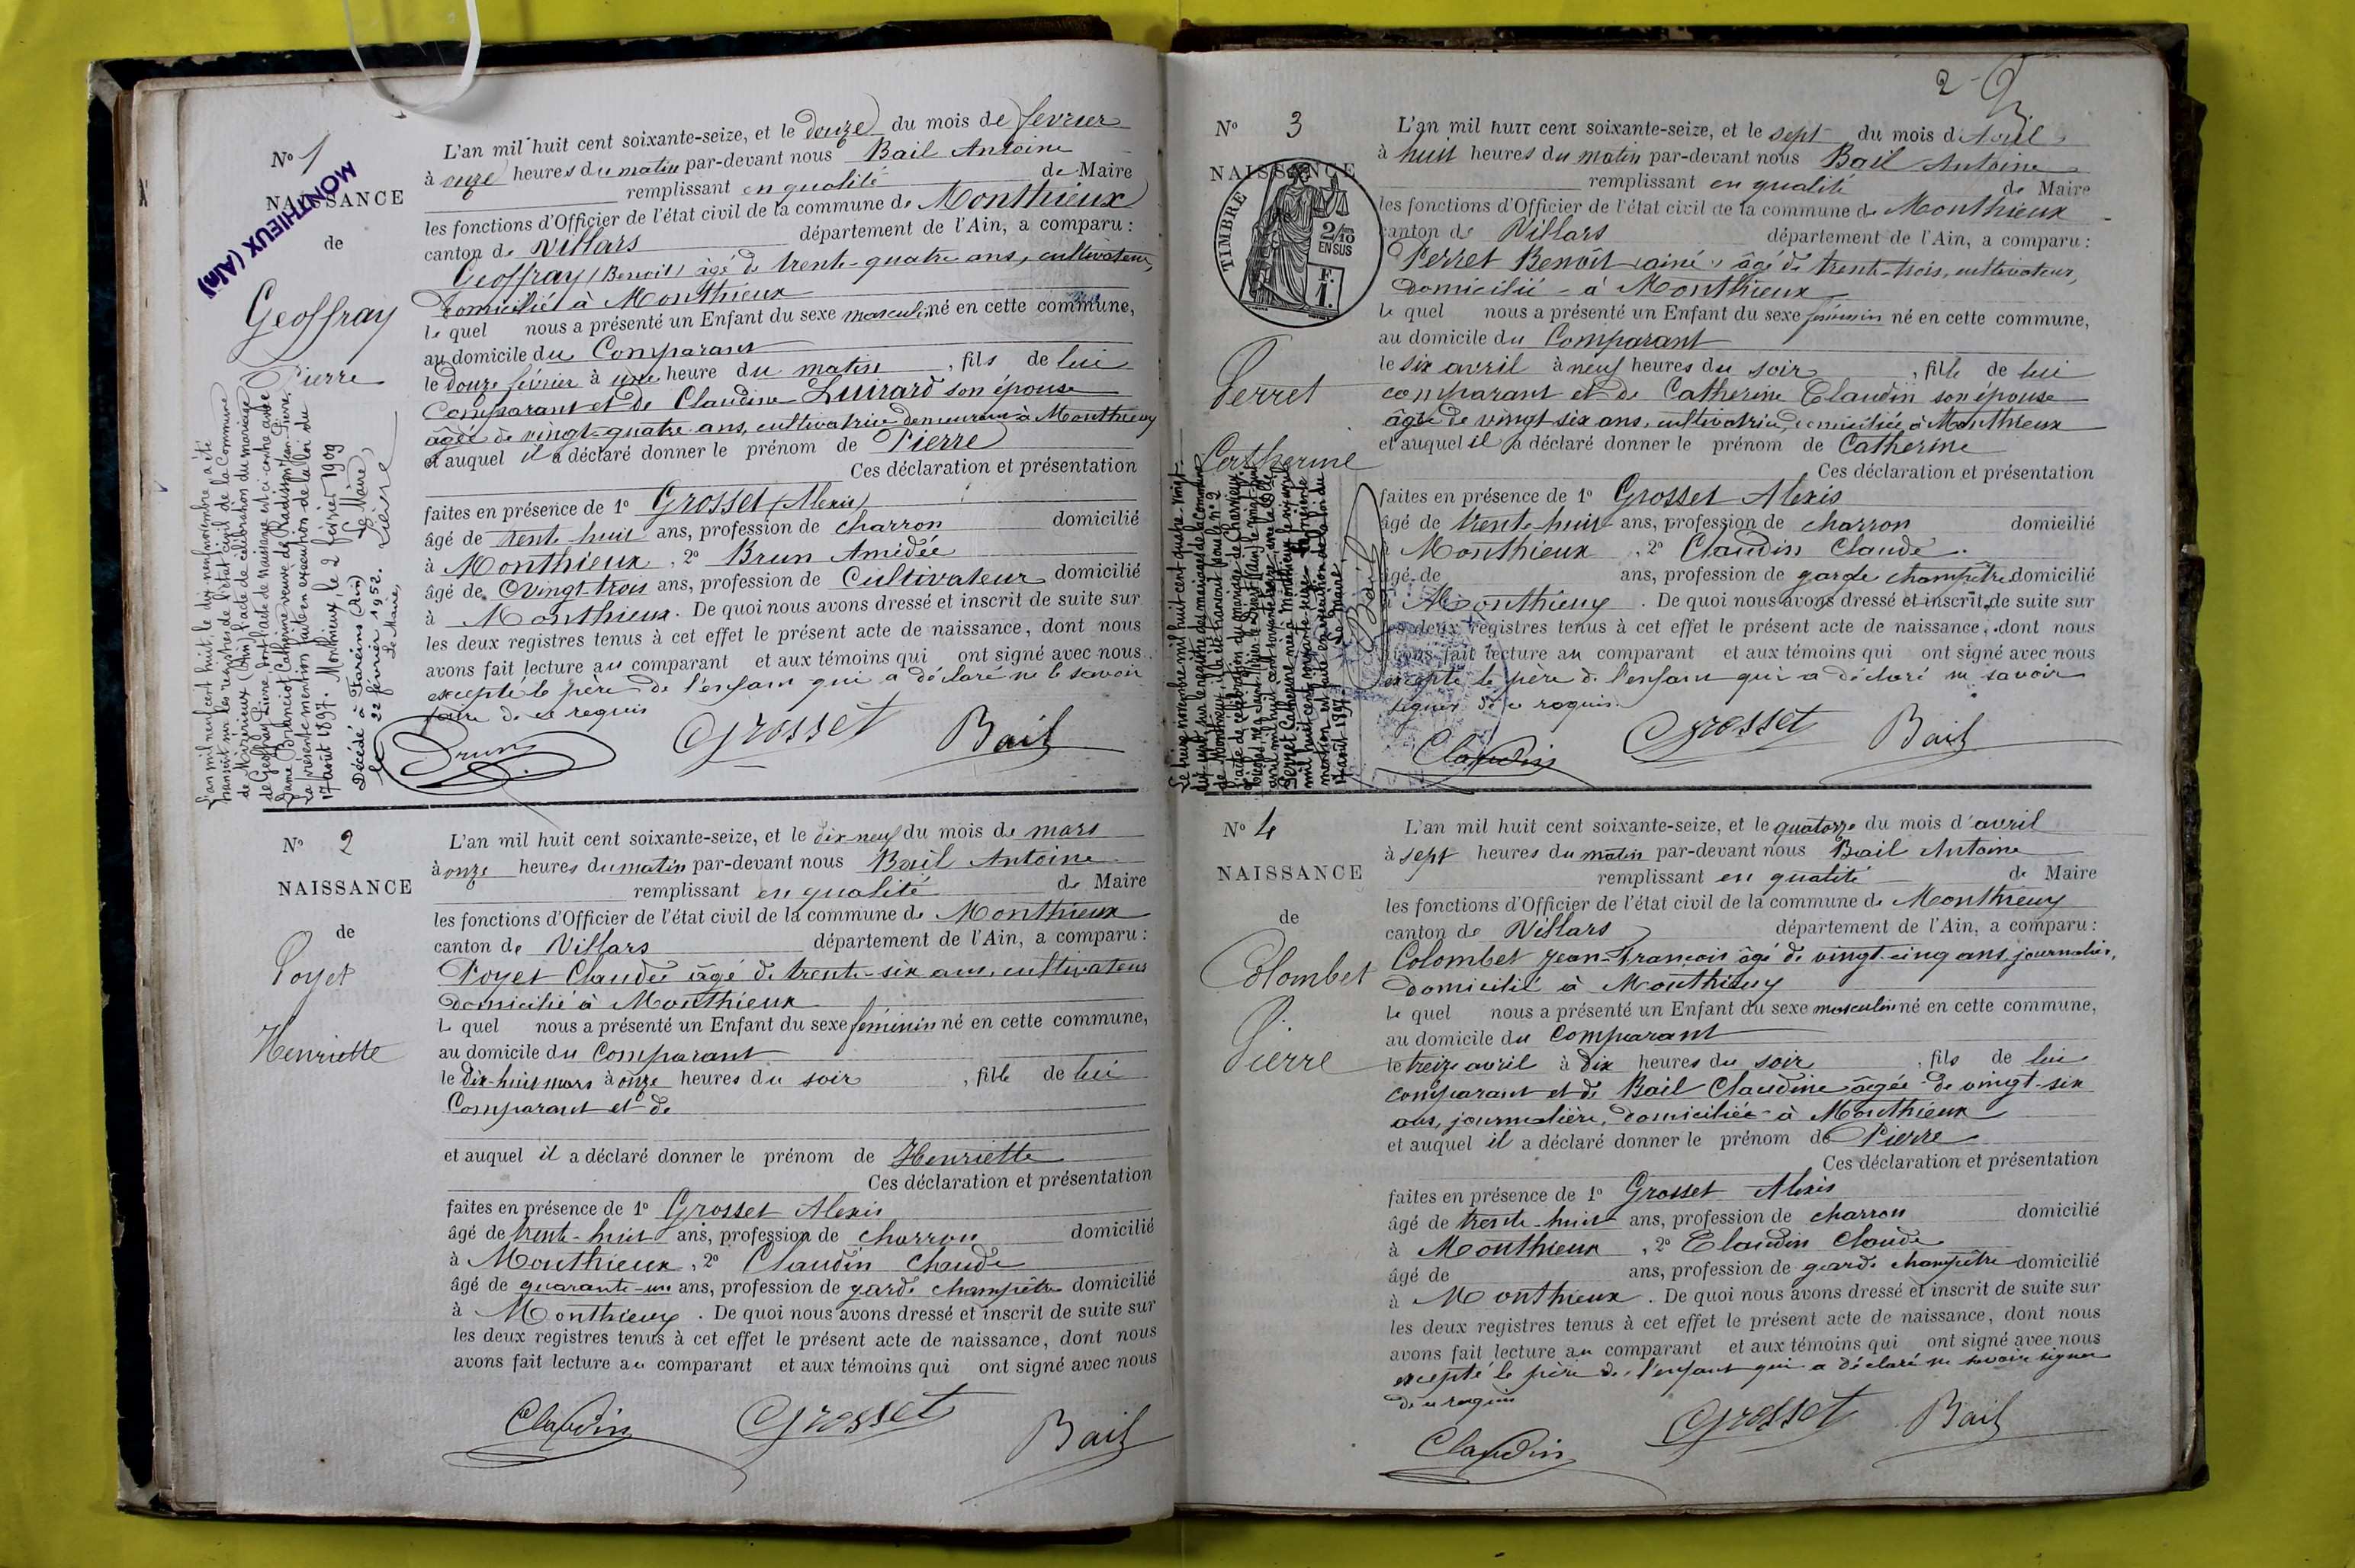 N° 1
MONTHIEUX (Ain)
NAISSANCE
de
Geoffray
Pierre
L'an mil neuf cent huit, le dix neuf novembre, a été
transcrit sur les registres de l'état civil de la Commune
de Mizérieux (Ain), l'acte de célébration du mariage
de Geoffray Pierre dont l'acte de naissance est ci-contre avec
Dame Catherine veuve de Jean-Pierre.
La présente mention faite en exécution de la loi du
17 août 1897. Monthieux, le 2 février 1909
Le Maire,
Décédé à Fareins (Ain)
le 22 février 1952.
Le Maire,
L'an mil huit cent soixante-seize, et le douze du mois de février
à onze heures du matin par-devant nous Bail Antoine
remplissant en qualité de Maire
les fonctions d'Officier de l'état civil de la commune de Monthieux
canton de Villars département de l'Ain, a comparu :
Geoffray (Benoit) âgé de trente-quatre ans, cultivateur,
domicilié à Monthieux
le quel nous a présenté un Enfant du sexe masculin né en cette commune,
au domicile du Comparant
le douze février à une heure du matin , fils de lui
Comparant et de Claudine Luirard son épouse
âgée de vingt-quatre ans, cultivatrice demeurant à Monthieux
et auquel il a déclaré donner le prénom de Pierre
Ces déclaration et présentation
faites en présence de 1° Grosset (Alexis)
âgé de trente huit ans, profession de charron domicilié
à Monthieux , 2° Brun Amédée
âgé de Vingt-trois ans, profession de Cultivateur domicilié
à Monthieux . De quoi nous avons dressé et inscrit de suite sur
les deux registres tenus à cet effet le présent acte de naissance, dont nous
avons fait lecture au comparant et aux témoins qui ont signé avec nous
excepté le père de l'enfant qui a déclaré ne le savoir
faire de ce requis
Brun Grosset Bail
N° 2
NAISSANCE
de
Poyet
Henriette
L'an mil huit cent soixante-seize, et le dix neuf du mois de mars
à onze heures du matin par-devant nous Bail Antoine
remplissant en qualité de Maire
les fonctions d'Officier de l'état civil de la commune de Monthieux
canton de Villars département de l'Ain, a comparu :
Poyet Claude âgé de trente-six ans, cultivateur
domicilié à Monthieux
le quel nous a présenté un Enfant du sexe féminin né en cette commune,
au domicile du Comparant
le dix-huit mars à onze heures du soir , fille de lui
Comparant et de
et auquel il a déclaré donner le prénom de Henriette
Ces déclaration et présentation
faites en présence de 1° Grosset Alexis
âgé de trente-huit ans, profession de charron domicilié
à Monthieux , 2° Claudin Claude
âgé de quarante-un ans, profession de garde champêtre domicilié
à Monthieux . De quoi nous avons dressé et inscrit de suite sur
les deux registres tenus à cet effet le présent acte de naissance, dont nous
avons fait lecture au comparant et aux témoins qui ont signé avec nous
Claudin Grosset Bail
2
N° 3
NAISSANCE
TIMBRE
2/10
EN SUS
F.
1.
Perret
Catherine
Le treize novembre mil huit cent quatre-vingt-
de Monthieux, il a été transcrit sous le n° 2
l'acte de célébration du mariage de
Perret Catherine née à Monthieux le six avril
mil huit cent soixante-seize. La présente
mention est faite en exécution de la loi du
17 août 1897. Le Maire
Bail
L'an mil huit cent soixante-seize, et le sept du mois d'Avril
à huit heures du matin par-devant nous Bail Antoine
remplissant en qualité de Maire
les fonctions d'Officier de l'état civil de la commune de Monthieux
canton de Villars département de l'Ain, a comparu :
Perret Benoît ainé, âgé de trente-trois, cultivateur,
domicilié à Monthieux
le quel nous a présenté un Enfant du sexe féminin né en cette commune,
au domicile du Comparant
le six avril à neuf heures du soir , fille de lui
comparant et de Catherine Claudin son épouse
âgée de vingt-six ans, cultivatrice, domiciliée à Monthieux
et auquel il a déclaré donner le prénom de Catherine
Ces déclaration et présentation
faites en présence de 1° Grosset Alexis
âgé de trente-huit ans, profession de charron domicilié
à Monthieux , 2° Claudin Claude.
âgé de ans, profession de garde champêtre domicilié
à Monthieux . De quoi nous avons dressé et inscrit de suite sur
les deux registres tenus à cet effet le présent acte de naissance, dont nous
avons fait lecture au comparant et aux témoins qui ont signé avec nous
excepté le père de l'enfant qui a déclaré ne savoir
signer de ce requis.
Claudin Grosset Bail
N° 4
NAISSANCE
de
Colombet
Pierre
L'an mil huit cent soixante-seize, et le quatorze du mois d'avril
à sept heures du matin par-devant nous Bail Antoine
remplissant en qualité de Maire
les fonctions d'Officier de l'état civil de la commune de Monthieux
canton de Villars département de l'Ain, a comparu :
Colombet Jean-François âgé de vingt-cinq ans, journalier,
domicilié à Monthieux
le quel nous a présenté un Enfant du sexe masculin né en cette commune,
au domicile du Comparant
le treize avril à dix heures du soir , fils de lui
comparant et de Bail Claudine âgée de vingt-six
ans, journalière, domiciliée à Monthieux
et auquel il a déclaré donner le prénom de Pierre
Ces déclaration et présentation
faites en présence de 1° Grosset Alexis
âgé de trente-huit ans, profession de charron domicilié
à Monthieux , 2° Claudin Claude
âgé de ans, profession de garde champêtre domicilié
à Monthieux . De quoi nous avons dressé et inscrit de suite sur
les deux registres tenus à cet effet le présent acte de naissance, dont nous
avons fait lecture au comparant et aux témoins qui ont signé avec nous
excepté le père de l'enfant qui a déclaré ne savoir signer
de ce requis
Claudin Grosset Bail